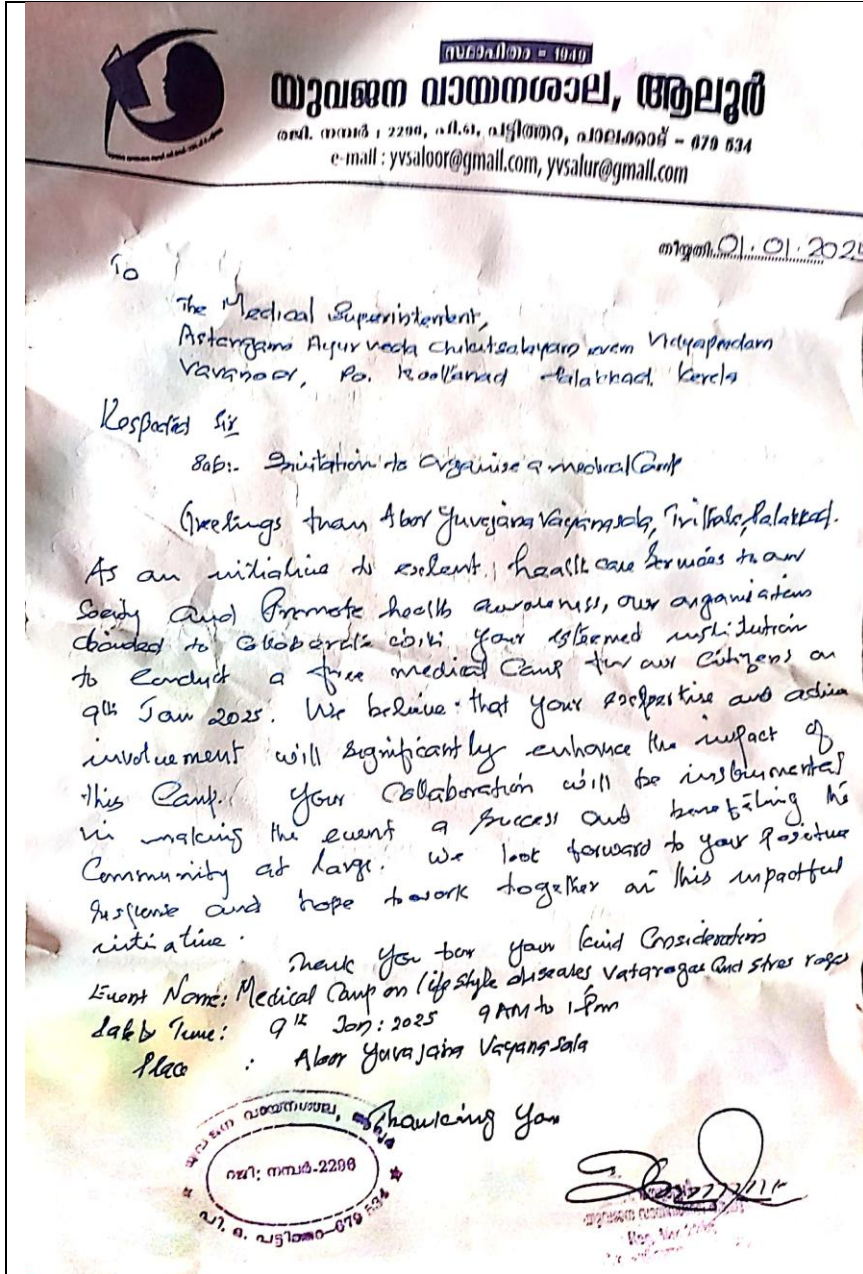 സ്ഥാപിതം = 1949
യുവജന വായനശാല, ആലൂർ
രജി. നമ്പർ : 2296, പി.ഒ, പട്ടിത്തറ, പാലക്കാട് - 679 534
e-mail : yvsaloor@gmail.com, yvsalur@gmail.com
തിയ്യതി 01.01.2025
To
The Medical Superintendent,
Astangam Ayurveda Chikitsalayam Vidyapeedam
Vavanoor, Po. Koottanad Palakkad. Kerala
Respected Sir
Sub:- Invitation to organise a medical Camp
Greetings from Aloor Yuvajana Vayanasala, Trithala, Palakkad.
As an initiative to extent health care services to our
Society and Promote health awareness, our organisation
decided to collaborate with your esteemed institution
to Conduct a free medical Camp for our Citizens on
9th Jan 2025. We believe that your expertise and active
involvement will significantly enhance the impact of
this Camp. Your Collaboration will be instrumental
in making the event a success and benefiting the
Community at large. We look forward to your Positive
response and hope to work together on this impactful
initiative.
Thank you for your kind Consideration
Event Name: Medical Camp on life style diseases Vataroga and stres
Date & Time: 9th Jan: 2025 9AM to 1Pm
Place : Aloor Yuvajana Vayanasala
Thanking You
യുവജന വായനശാല, ആലൂർ
രജി; നമ്പർ-2296
പി. ഒ. പട്ടിത്തറ-679 534